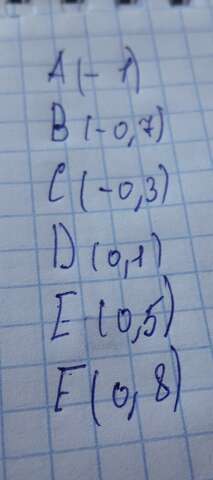 A (- 1)
B (-0,7)
C (-0,3)
D (0,1)
E (0,5)
F (0,8)